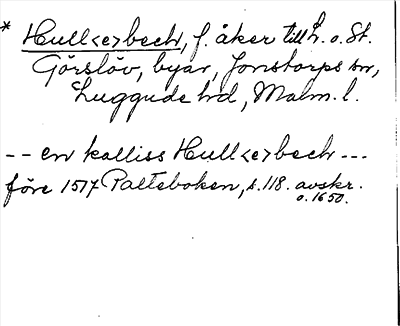 * Hull<e>bech, f. åker till L. o. St.
Görslöv, byar, Jonstorps sn,
Luggude hd, Malm. l.
-- en kalliss Hull<e>bech ---
före 1517 Palteboken, s. 118. avskr.
o. 1650.